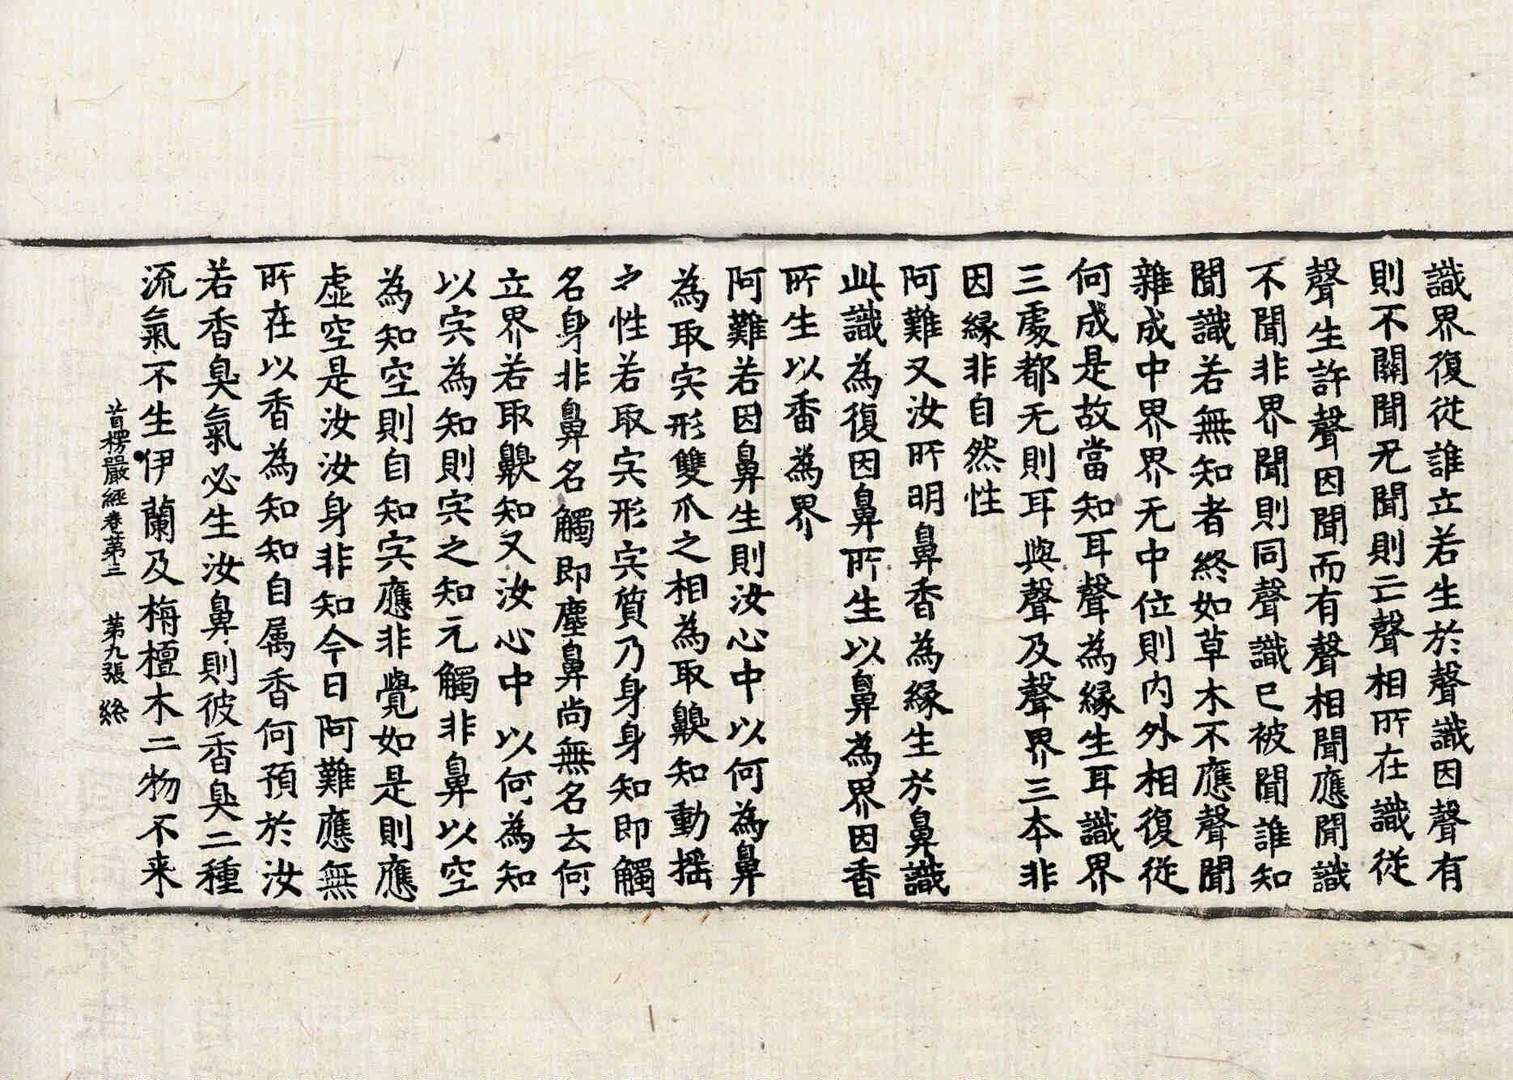 識界復從誰立若生於聲識因聲有
則不關聞无聞則亡聲相所在識從
聲生許聲因聞而有聲相聞應聞識
不聞非界聞則同聲識已被聞誰知
聞識若無知者終如草木不應聲聞
雜成中界界无中位則內外相復從
何成是故當知耳聲為緣生耳識界
三處都无則耳與聲及聲界三本非
因緣非自然性
阿難又汝所明鼻香為緣生於鼻識
此識為復因鼻所生以鼻為界因香
所生以香為界
阿難若因鼻生則汝心中以何為鼻
為取宍形雙爪之相為取齅知動搖
之性若取宍形宍質乃身身知即觸
名身非鼻名觸即塵鼻尚無名云何
立界若取齅知又汝心中以何為知
以宍為知則宍之知元觸非鼻以空
為知空則自知宍應非覺如是則應
虛空是汝汝身非知今日阿難應無
所在以香為知知自属香何預於汝
若香臭氣必生汝鼻則彼香臭二種
流氣不生伊蘭及栴檀木二物不来
首楞嚴經卷第三 第九張